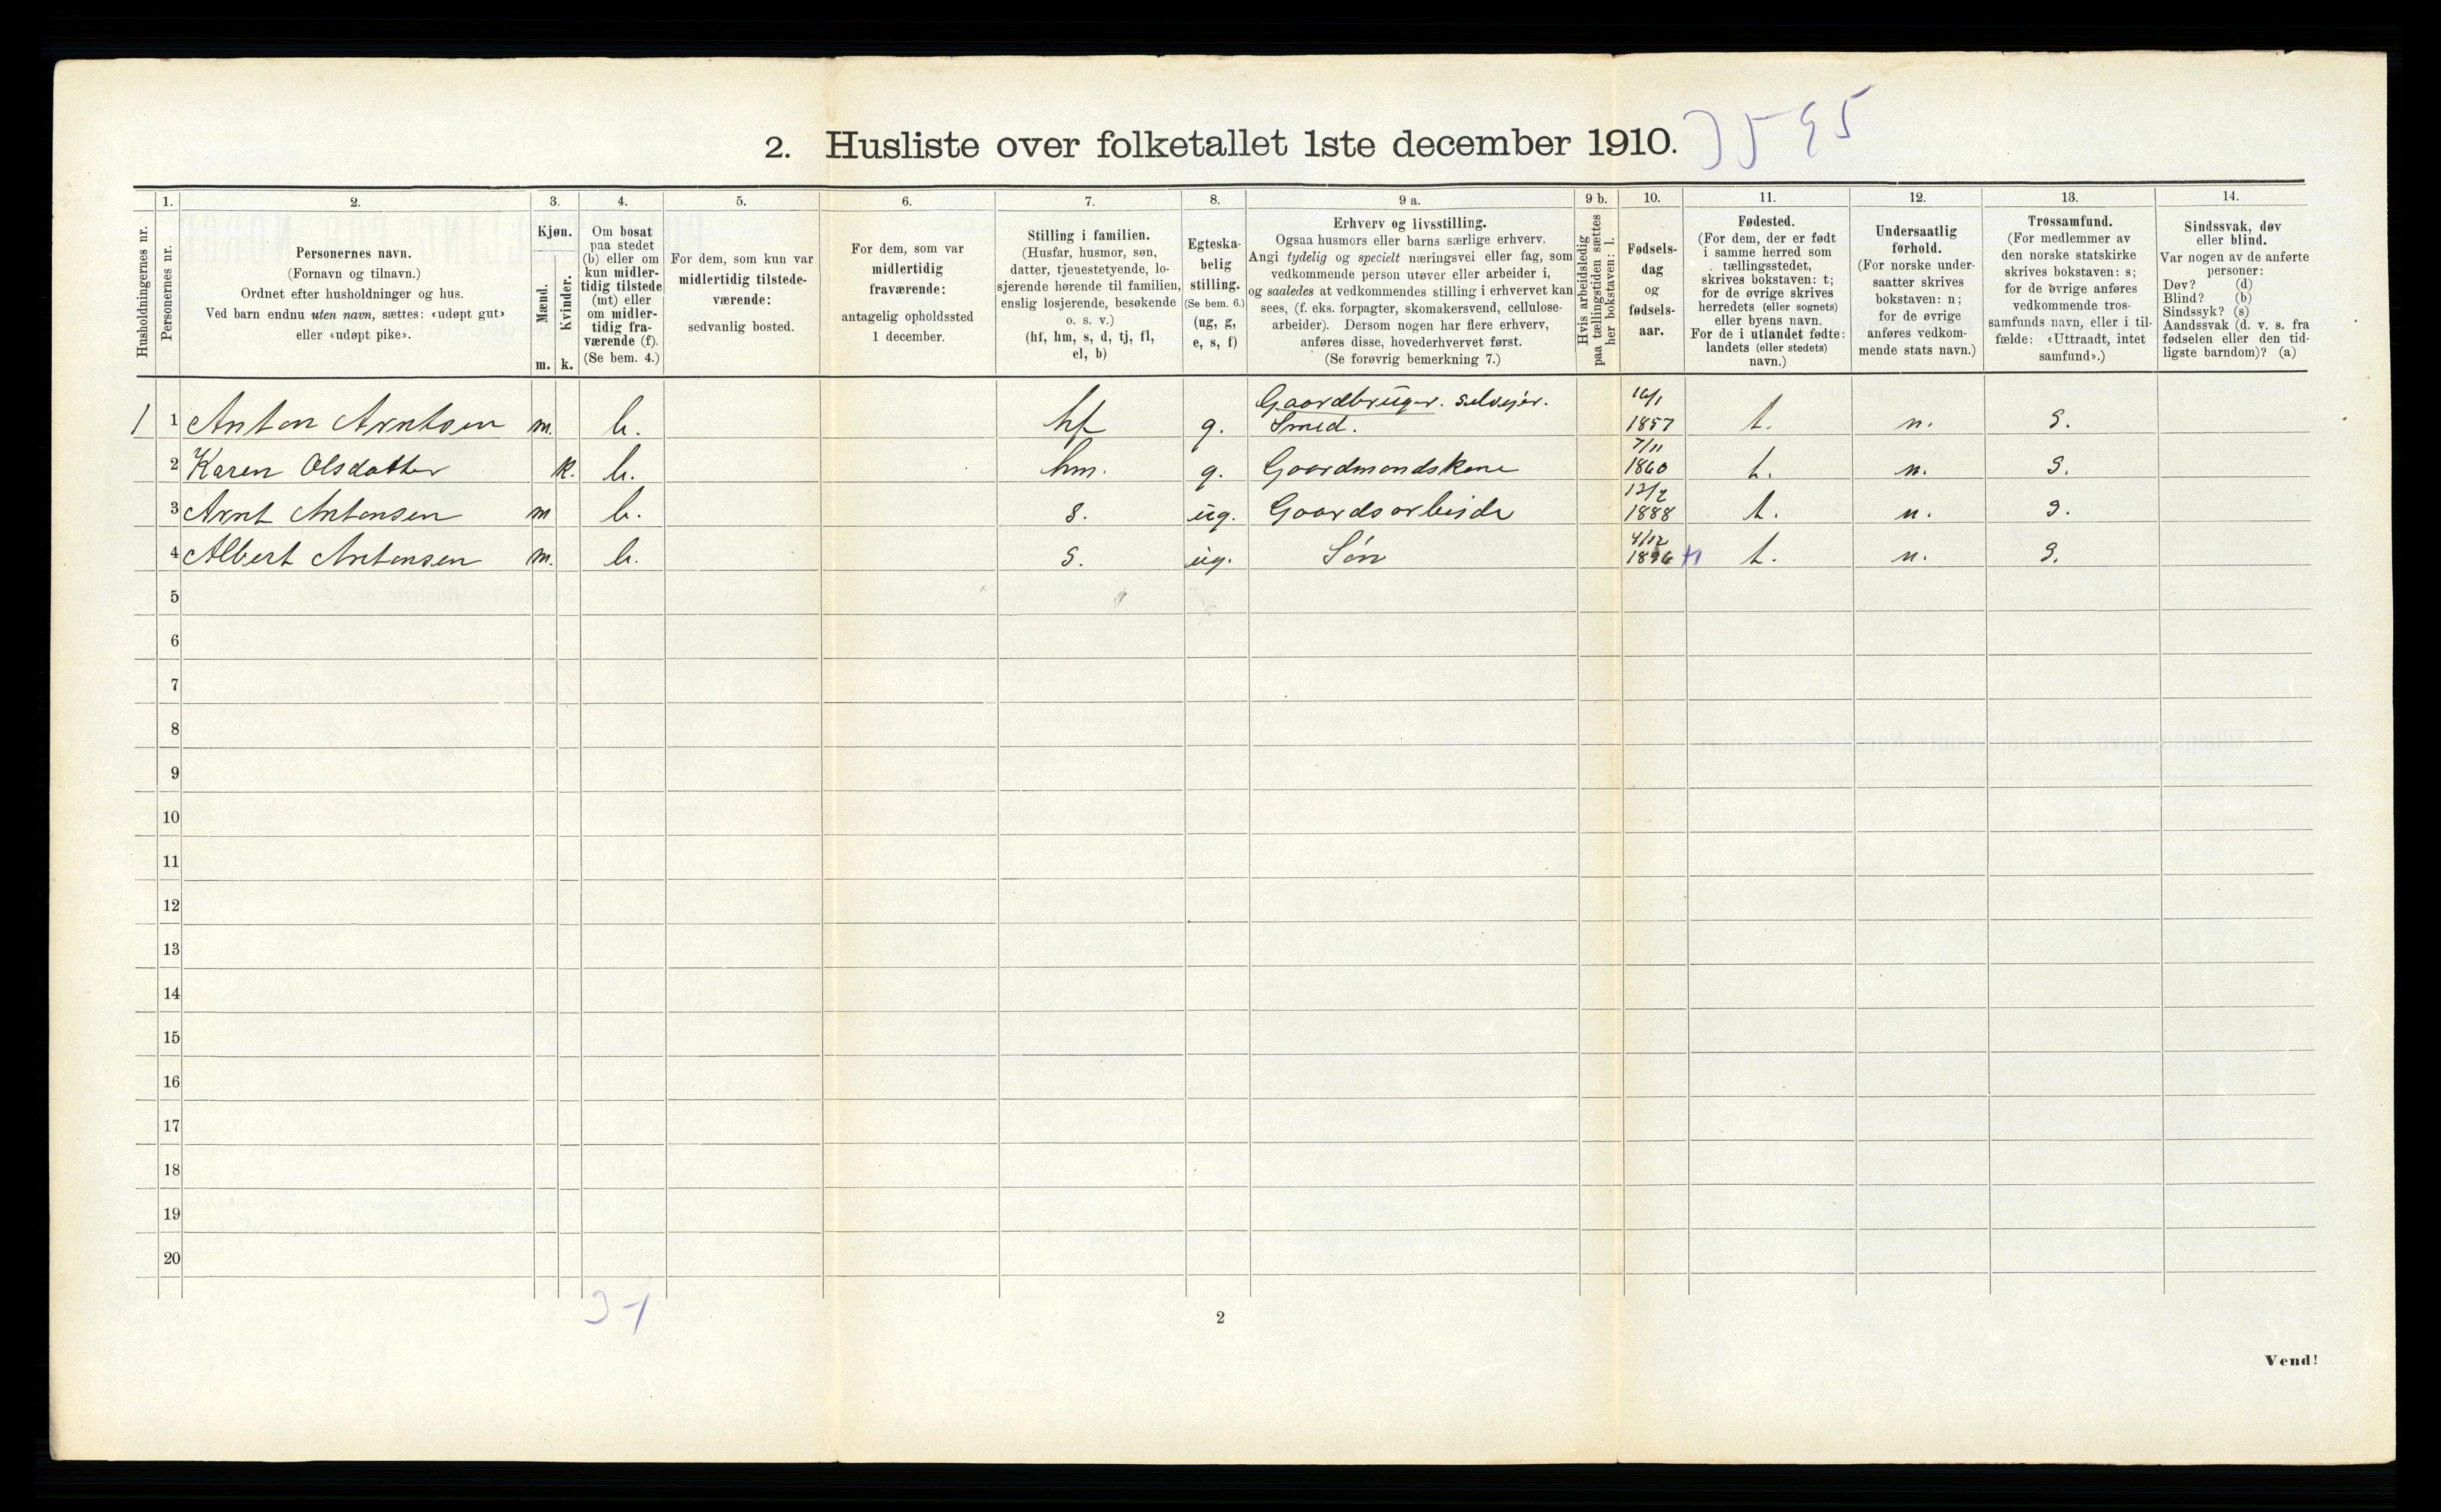 2. Husliste over folketallet 1ste december 1910. 3595
1. 2. 3. 4. 5. 6. 7. 8. 9 a. 9 b. 10. 11. 12. 13. 14.
Husholdningernes nr.
Personernes nr.
Personernes navn.
(Fornavn og tilnavn.)
Ordnet efter husholdninger og hus.
Ved barn endnu uten navn, sættes: «udøpt gut»
eller «udøpt pike».
Kjøn.
Mænd.
Kvinder.
m. k.
Om bosat
paa stedet
(b) eller om
kun midler-
tidig tilstede
(mt) eller
om midler-
tidig fra-
værende (f).
(Se bem. 4.)
For dem, som kun var
midlertidig tilstede-
værende:
sedvanlig bosted.
For dem, som var
midlertidig
fraværende:
antagelig opholdssted
1 december.
Stilling i familien.
(Husfar, husmor, søn,
datter, tjenestetyende, lo-
sjerende hørende til familien,
enslig losjerende, besøkende
o. s. v.)
(hf, hm, s, d, tj, fl,
el, b)
Egteska-
belig
stilling.
(Se bem. 6.)
(ug, g,
e, s, f)
Erhverv og livsstilling.
Ogsaa husmors eller barns særlige erhverv.
Angi tydelig og specielt næringsvei eller fag, som
vedkommende person utøver eller arbeider i,
og saaledes at vedkommendes stilling i erhvervet kan
sees, (f. eks. forpagter, skomakersvend, cellulose-
arbeider). Dersom nogen har flere erhverv,
anføres disse, hovederhvervet først.
(Se forøvrig bemerkning 7.)
Hvis arbeidsledig
paa tællingstiden sættes
her bokstaven: l.
Fødsels-
dag
og
fødsels-
aar.
Fødested.
(For dem, der er født
i samme herred som
tællingsstedet,
skrives bokstaven: t;
for de øvrige skrives
herredets (eller sognets)
eller byens navn.
For de i utlandet fødte:
landets (eller stedets)
navn.)
Undersaatlig
forhold.
(For norske under-
saatter skrives
bokstaven: n;
for de øvrige
anføres vedkom-
mende stats navn.)
Trossamfund.
(For medlemmer av
den norske statskirke
skrives bokstaven: s;
for de øvrige anføres
vedkommende tros-
samfunds navn, eller i til-
fælde: «Uttraadt, intet
samfund».)
Sindssvak, døv
eller blind.
Var nogen av de anførte
personer:
Døv? (d)
Blind? (b)
Sindssyk? (s)
Aandssvak (d. v. s. fra
fødselen eller den tid-
ligste barndom)? (a)
Gaardbruger. selvejer. 16/1
1 1 Anton Arntsen m. b. hf g. Smed. 1857 t. n. s.
7/11
2 Karen Olsdatter k. b. hm. g. Gaardmandskone 1860 t. n. s.
12/2
3 Arnt Antonsen m b. s. ug. Gaardsarbeide 1888 t. n. s.
4/12
4 Albert Antonsen m. b. s. ug. Søn 1896 t. n. s.
5
6
7
8
9
10
11
12
13
14
15
16
17
18
19
20
3-1
2
Vend!